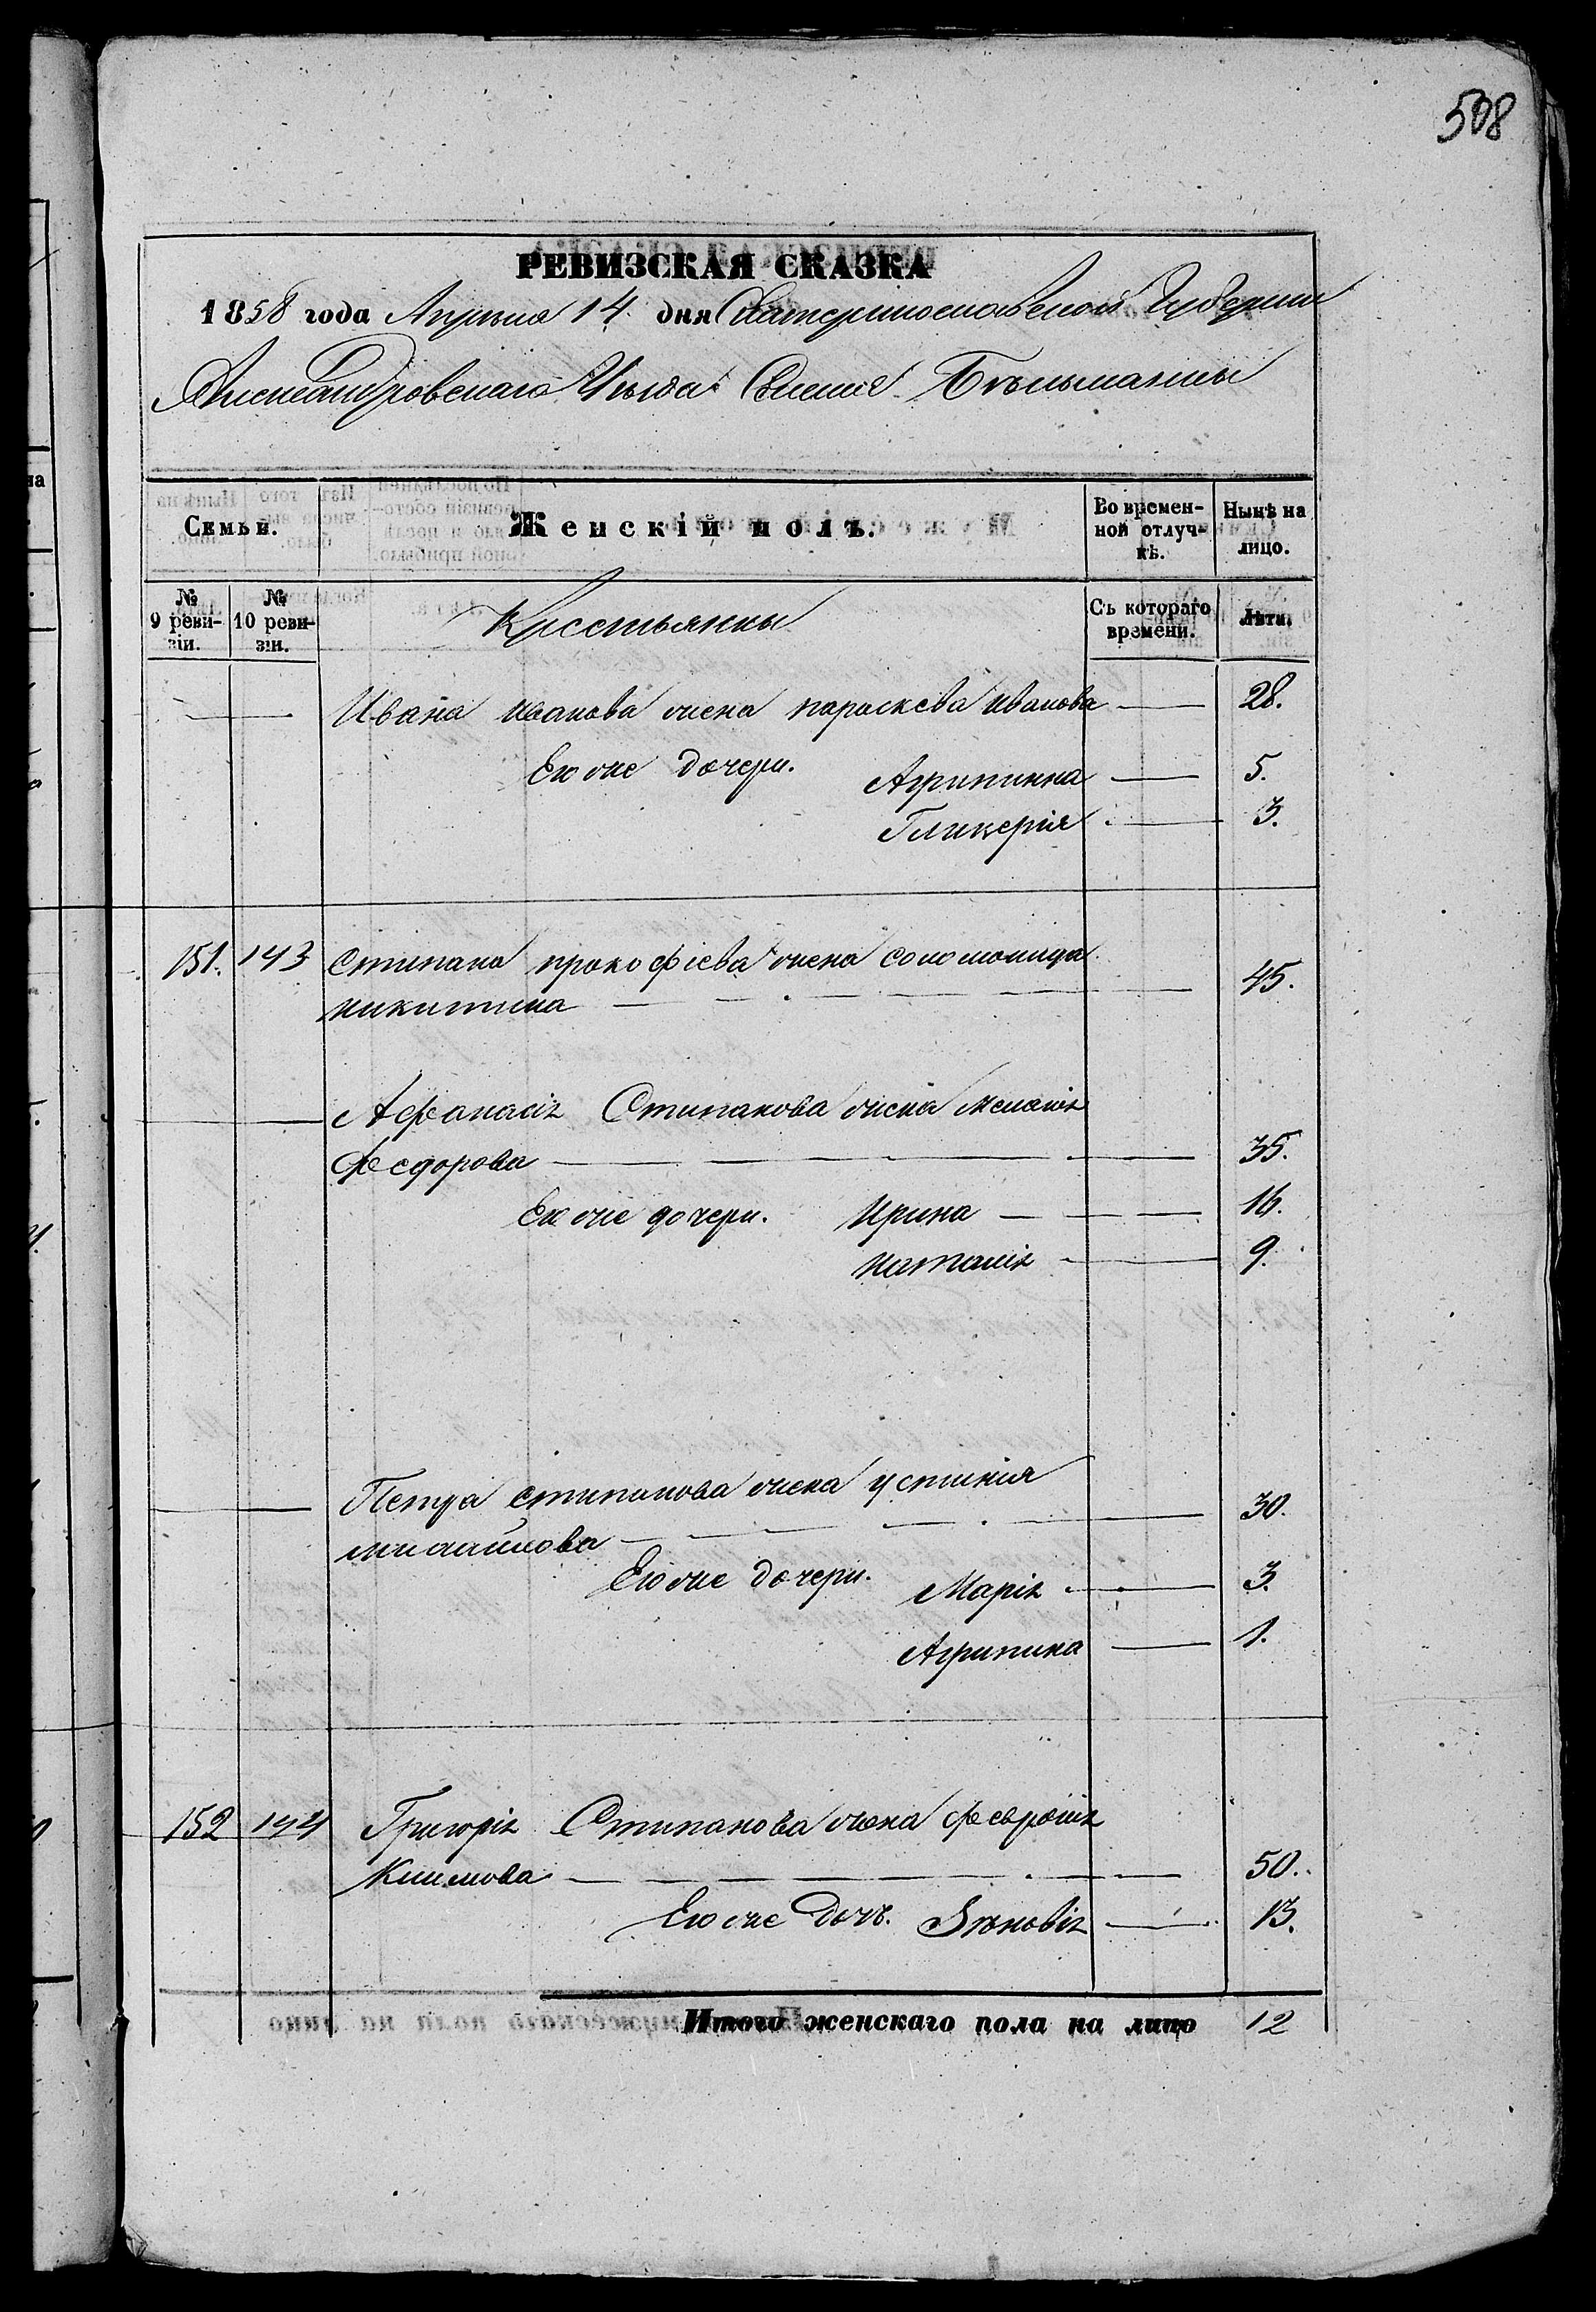 508
РЕВИЗСКАЯ СКАЗКА
1858 года Апрѣля 14 дня Екатеринославской Губерніи
Александровскаго Уѣзда Селенія Бѣльманки
Семьи. Женскій полъ. Во временной отлучкѣ. Нынѣ на лицо.
№ 9 ревизіи. № 10 ревизіи. Крестьянки Съ котораго времени. Лѣта.
Ивана Иванова жена параскева Иванова 28.
Ею же дочери. Агрипинна 5.
Гликерія 3.
151. 143 Стипана прокофіева жена соломонида
никитина 45.
Афанасія Стипанова жена Меланія
Федорова 35.
Ею же дочери. Ирина 16.
Наталія 9.
Петра стипанова жена устинія
михайлова 30.
Ею же дочери. Марія 3.
Агрипина 1.
152 144 Григорія Стипанова жена Февронія
Климова 50.
Ею же дочъ. Зѣновія 13.
Итого женскаго пола на лицо 12